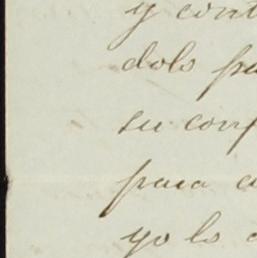 y cont
dolo pa
su conf
para a
yo lo